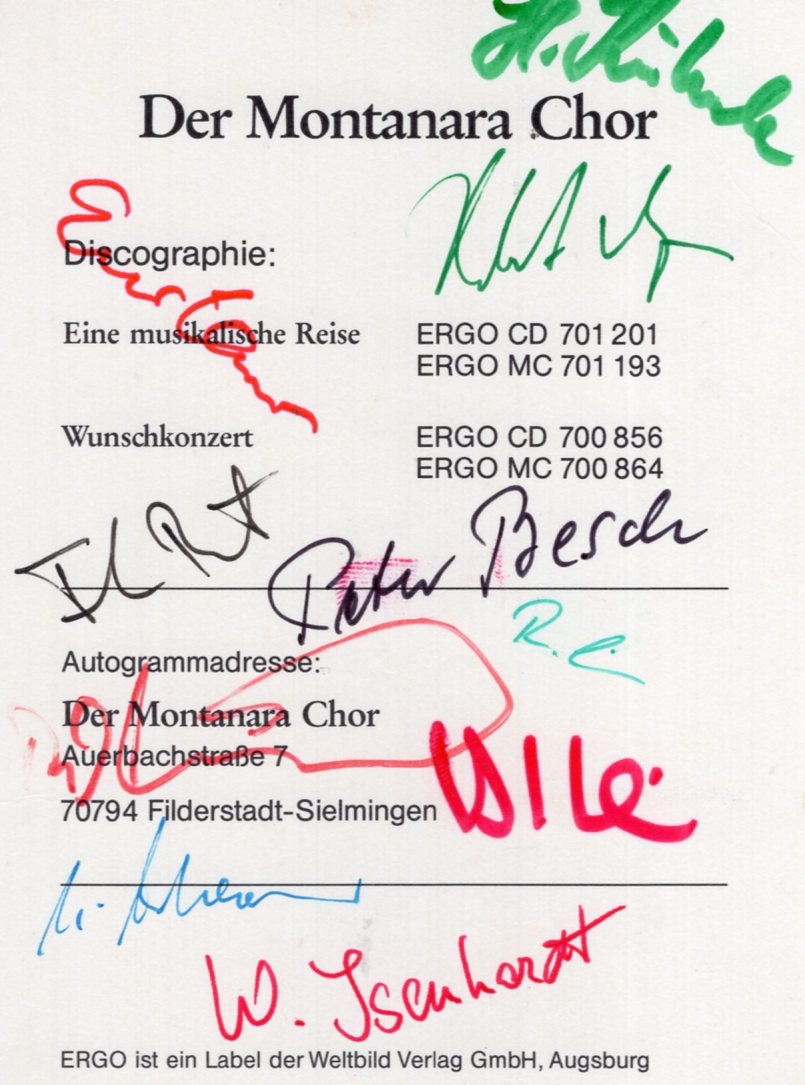 Der Montanara Chor
Discographie:
Eine musikalische Reise ERGO CD 701 201
ERGO MC 701 193
Wunschkonzert ERGO CD 700 856
ERGO MC 700 864
Peter Besch
R.
Autogrammadresse:
Der Montanara Chor
Auerbachstraße 7
70794 Filderstadt-Sielmingen
W. Isenhardt
ERGO ist ein Label der Weltbild Verlag GmbH, Augsburg